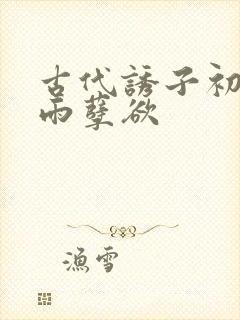 古代誘子初
雨孽欲
漁雪